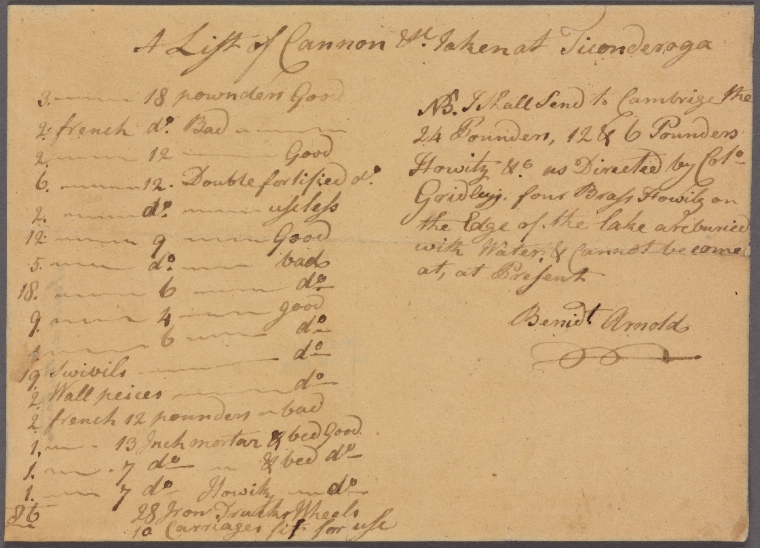 A List of Cannon &c. taken at Ticonderoga
3. 18 pownders Good
2. french do. Bad
2. 12 Good
6. 12. Double fortified do.
2. do. useless
12. 9 Good
5. do. bad
18. 6 do.
9. 4 good
1. 6 do.
19 Swivils do.
2 Wall peices do.
2. french 12 pounders bad
1, 13 Inch mortar & bed Good
1. 7 do. & bed do.
1. 7 do. Howitz do.
86
28 Iron Truck Wheels
10 Carriages fit for use
NB. I shall Send to Cambrige the
24 Pounders, 12 & 6 Pounders
Howitz &c. as Directed by Colo.
Gridley. four Brass Howitz on
the Edge of the lake are buried
with Water, & Cannot be come
at, at Present
Benidt. Arnold